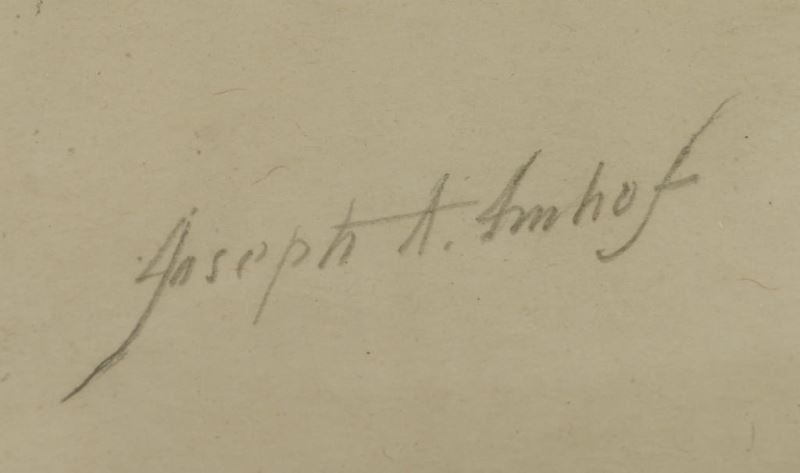 Joseph A. Imhof